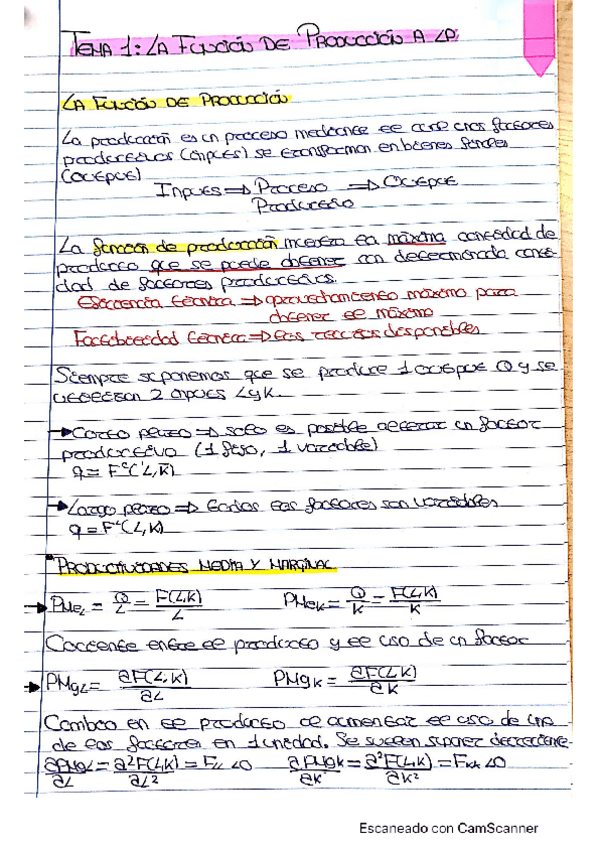 TEMA 1: LA FUNCIÓN DE PRODUCCIÓN A LP.
LA FUNCIÓN DE PRODUCCIÓN
La producción es un proceso mediante el cual unos factores
productivos (inputs) se transforman en bienes finales
(output)
Inputs ⇒ Proceso ⇒ Output
Productivo
La función de producción muestra la máxima cantidad de
producto que se puede obtener con determinada canti-
dad de factores productivos.
Eficiencia técnica ⇒ aprovechamiento máximo para
obtener el máximo
Factibilidad técnica ⇒ los recursos disponibles
Siempre suponemos que se produce 1 output Q y se
necesitan 2 inputs L y K.
→ Corto plazo ⇒ solo es posible alterar un factor
productivo (1 fijo, 1 variable)
q = F(L, K̄)
→ Largo plazo ⇒ todos los factores son variables
q = F(L, K)
PRODUCTIVIDADES MEDIA Y MARGINAL
→ PMeL = Q/L = F(L,K)/L PMeK = Q/K = F(L,K)/K
Cociente entre el producto y el uso de un factor
→ PMgL = ∂F(L,K)/∂L PMgK = ∂F(L,K)/∂K
Cambio en el producto al aumentar el uso de uno
de los factores en 1 unidad. Se suelen suponer decreciente.
∂PMgL/∂L = ∂²F(L,K)/∂L² = FLL <0 ∂PMgK/∂K = ∂²F(L,K)/∂K² = FKK <0
Escaneado con CamScanner